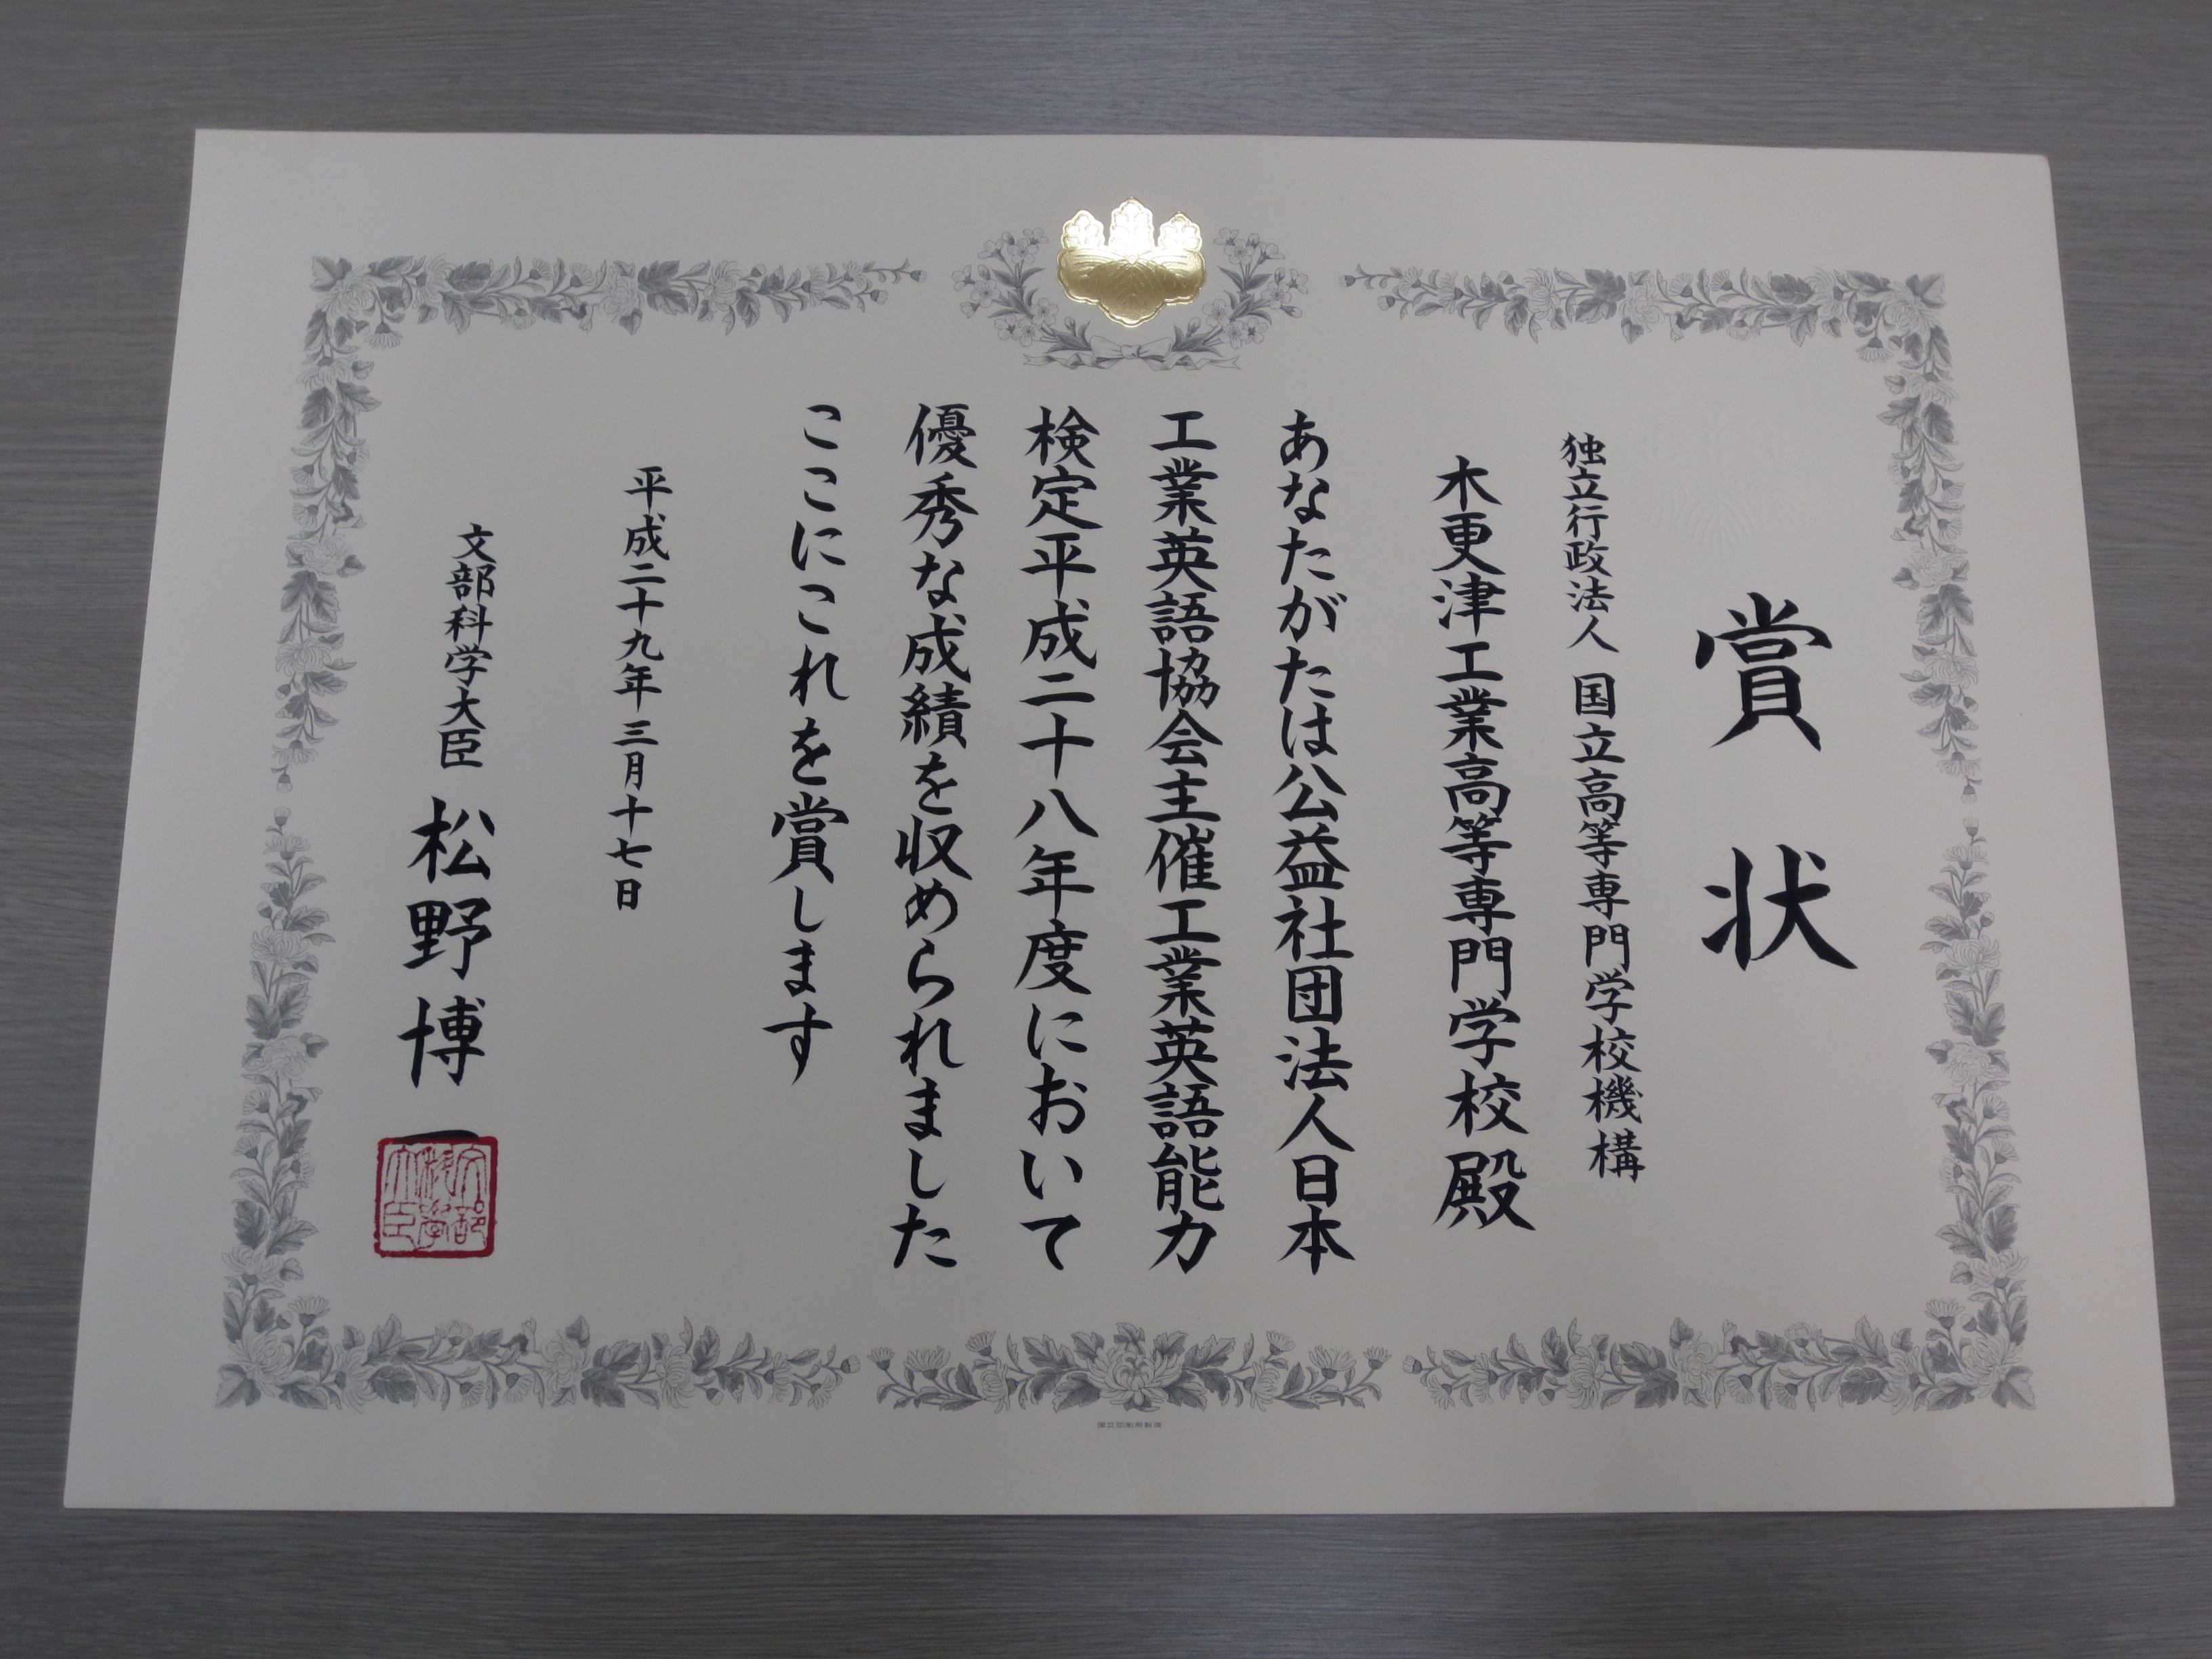 賞状
独立行政法人 国立高等専門学校機構
木更津工業高等専門学校殿
あなたがたは公益社団法人日本
工業英語協会主催工業英語能力
検定平成二十八年度において
優秀な成績を収められました
ここにこれを賞します
平成二十九年三月十七日
文部科学大臣 松野博一
文部科学大臣
国立印刷局製造